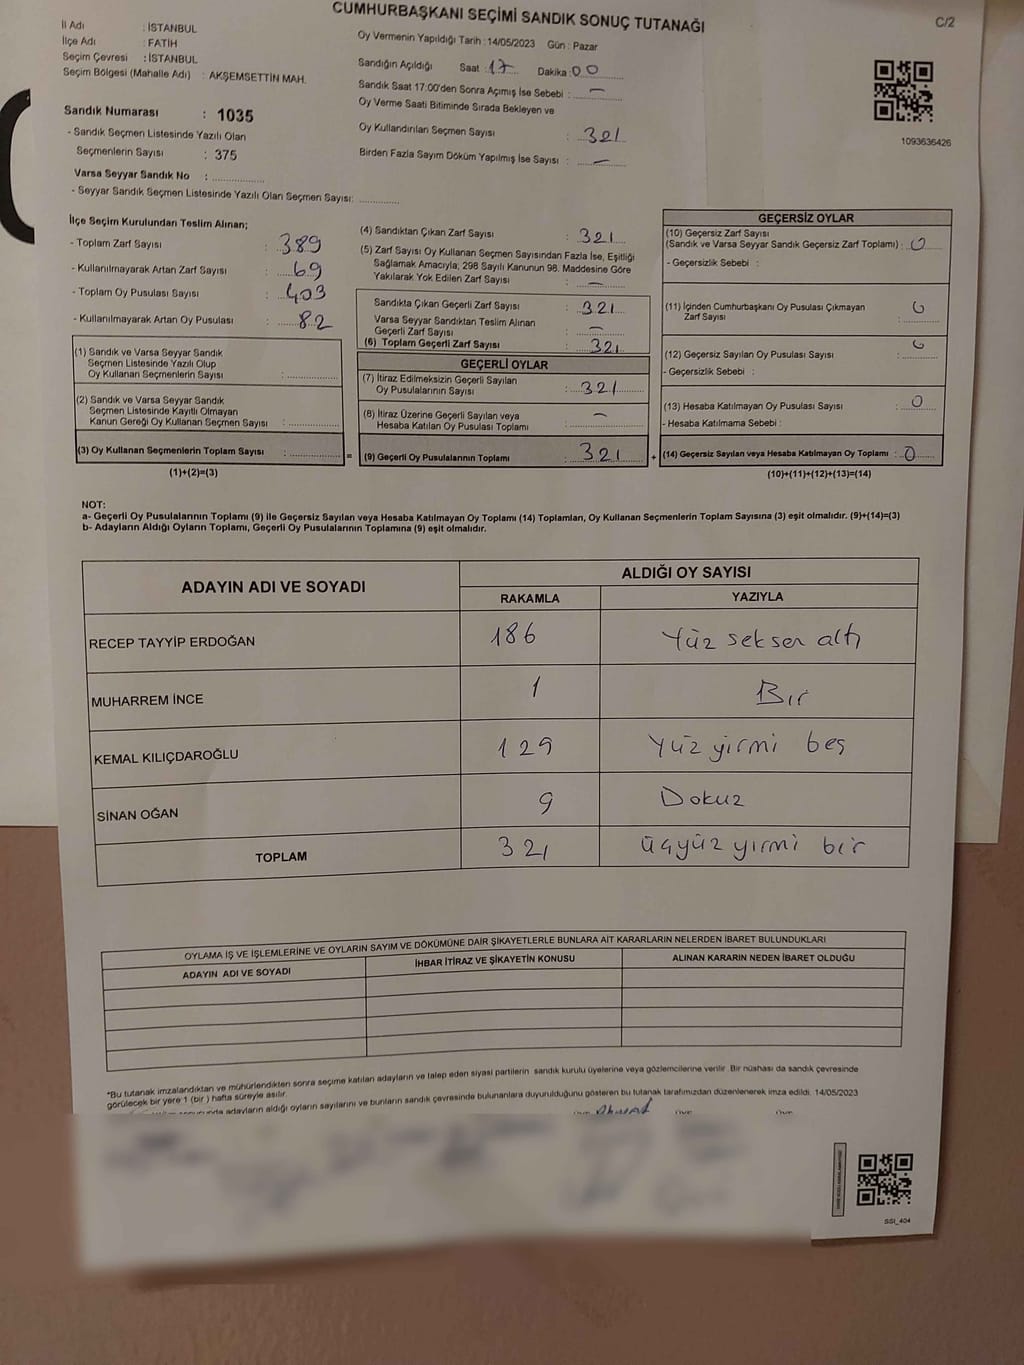 CUMHURBAŞKANI SEÇİMİ SANDIK SONUÇ TUTANAĞI
C/2
İl Adı : İSTANBUL
İlçe Adı : FATİH
Seçim Çevresi : İSTANBUL
Seçim Bölgesi (Mahalle Adı) : AKŞEMSETTİN MAH.
Sandık Numarası : 1035
- Sandık Seçmen Listesinde Yazılı Olan
Seçmenlerin Sayısı : 375
Varsa Seyyar Sandık No : ..............
- Seyyar Sandık Seçmen Listesinde Yazılı Olan Seçmen Sayısı: ............
Oy Vermenin Yapıldığı Tarih : 14/05/2023 Gün : Pazar
Sandığın Açıldığı Saat : 17 Dakika : 00
Sandık Saat 17:00'den Sonra Açımış İse Sebebi : —
Oy Verme Saati Bitiminde Sırada Bekleyen ve
Oy Kullandırılan Seçmen Sayısı : 321
Birden Fazla Sayım Döküm Yapılmış İse Sayısı : —
1093636426
İlçe Seçim Kurulundan Teslim Alınan;
- Toplam Zarf Sayısı : 389
- Kullanılmayarak Artan Zarf Sayısı : 69
- Toplam Oy Pusulası Sayısı : 403
- Kullanılmayarak Artan Oy Pusulası : 82
(1) Sandık ve Varsa Seyyar Sandık
Seçmen Listesinde Yazılı Olup
Oy Kullanan Seçmenlerin Sayısı : ..............
(2) Sandık ve Varsa Seyyar Sandık
Seçmen Listesinde Kayıtlı Olmayan
Kanun Gereği Oy Kullanan Seçmen Sayısı : ..............
(3) Oy Kullanan Seçmenlerin Toplam Sayısı : .............. =
(1)+(2)=(3)
(4) Sandıktan Çıkan Zarf Sayısı : 321
(5) Zarf Sayısı Oy Kullanan Seçmen Sayısından Fazla İse, Eşitliği
Sağlamak Amacıyla; 298 Sayılı Kanunun 98. Maddesine Göre
Yakılarak Yok Edilen Zarf Sayısı : —
Sandıkta Çıkan Geçerli Zarf Sayısı : 321
Varsa Seyyar Sandıktan Teslim Alınan
Geçerli Zarf Sayısı : —
(6) Toplam Geçerli Zarf Sayısı : 321
GEÇERLİ OYLAR
(7) İtiraz Edilmeksizin Geçerli Sayılan
Oy Pusulalarının Sayısı : 321
(8) İtiraz Üzerine Geçerli Sayılan veya
Hesaba Katılan Oy Pusulası Toplamı : —
(9) Geçerli Oy Pusulalarının Toplamı : 321 +
GEÇERSİZ OYLAR
(10) Geçersiz Zarf Sayısı
(Sandık ve Varsa Seyyar Sandık Geçersiz Zarf Toplamı) : 0
- Geçersizlik Sebebi :
(11) İçinden Cumhurbaşkanı Oy Pusulası Çıkmayan
Zarf Sayısı : 0
(12) Geçersiz Sayılan Oy Pusulası Sayısı : 0
- Geçersizlik Sebebi :
(13) Hesaba Katılmayan Oy Pusulası Sayısı : 0
- Hesaba Katılmama Sebebi :
(14) Geçersiz Sayılan veya Hesaba Katılmayan Oy Toplamı : 0
(10)+(11)+(12)+(13)=(14)
NOT:
a- Geçerli Oy Pusulalarının Toplamı (9) ile Geçersiz Sayılan veya Hesaba Katılmayan Oy Toplamı (14) Toplamları, Oy Kullanan Seçmenlerin Toplam Sayısına (3) eşit olmalıdır. (9)+(14)=(3)
b- Adayların Aldığı Oyların Toplamı, Geçerli Oy Pusulalarının Toplamına (9) eşit olmalıdır.
ADAYIN ADI VE SOYADI ALDIĞI OY SAYISI
RAKAMLA YAZIYLA
RECEP TAYYİP ERDOĞAN 186 Yüz seksen altı
MUHARREM İNCE 1 Bir
KEMAL KILIÇDAROĞLU 129 Yüz yirmi beş
SİNAN OĞAN 9 Dokuz
TOPLAM 321 üçyüz yırmi bir
OYLAMA İŞ VE İŞLEMLERİNE VE OYLARIN SAYIM VE DÖKÜMÜNE DAİR ŞİKAYETLERLE BUNLARA AİT KARARLARIN NELERDEN İBARET BULUNDUKLARI
ADAYIN ADI VE SOYADI İHBAR İTİRAZ VE ŞİKAYETİN KONUSU ALINAN KARARIN NEDEN İBARET OLDUĞU
*Bu tutanak imzalandıktan ve mühürlendikten sonra seçime katılan adayların ve talep eden siyasi partilerin sandık kurulu üyelerine veya gözlemcilerine verilir. Bir nüshası da sandık çevresinde
görülecek bir yere 1 (bir ) hafta süreyle asılır.
adayların aldığı oyların sayılarını ve bunların sandık çevresinde bulunanlara duyurulduğunu gösteren bu tutanak tarafımızdan düzenlenerek imza edildi. 14/05/2023
SSI_404